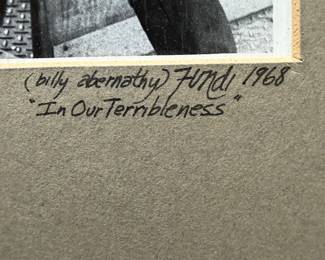 (billy abernathy) Fundi 1968
"In Our Terribleness"